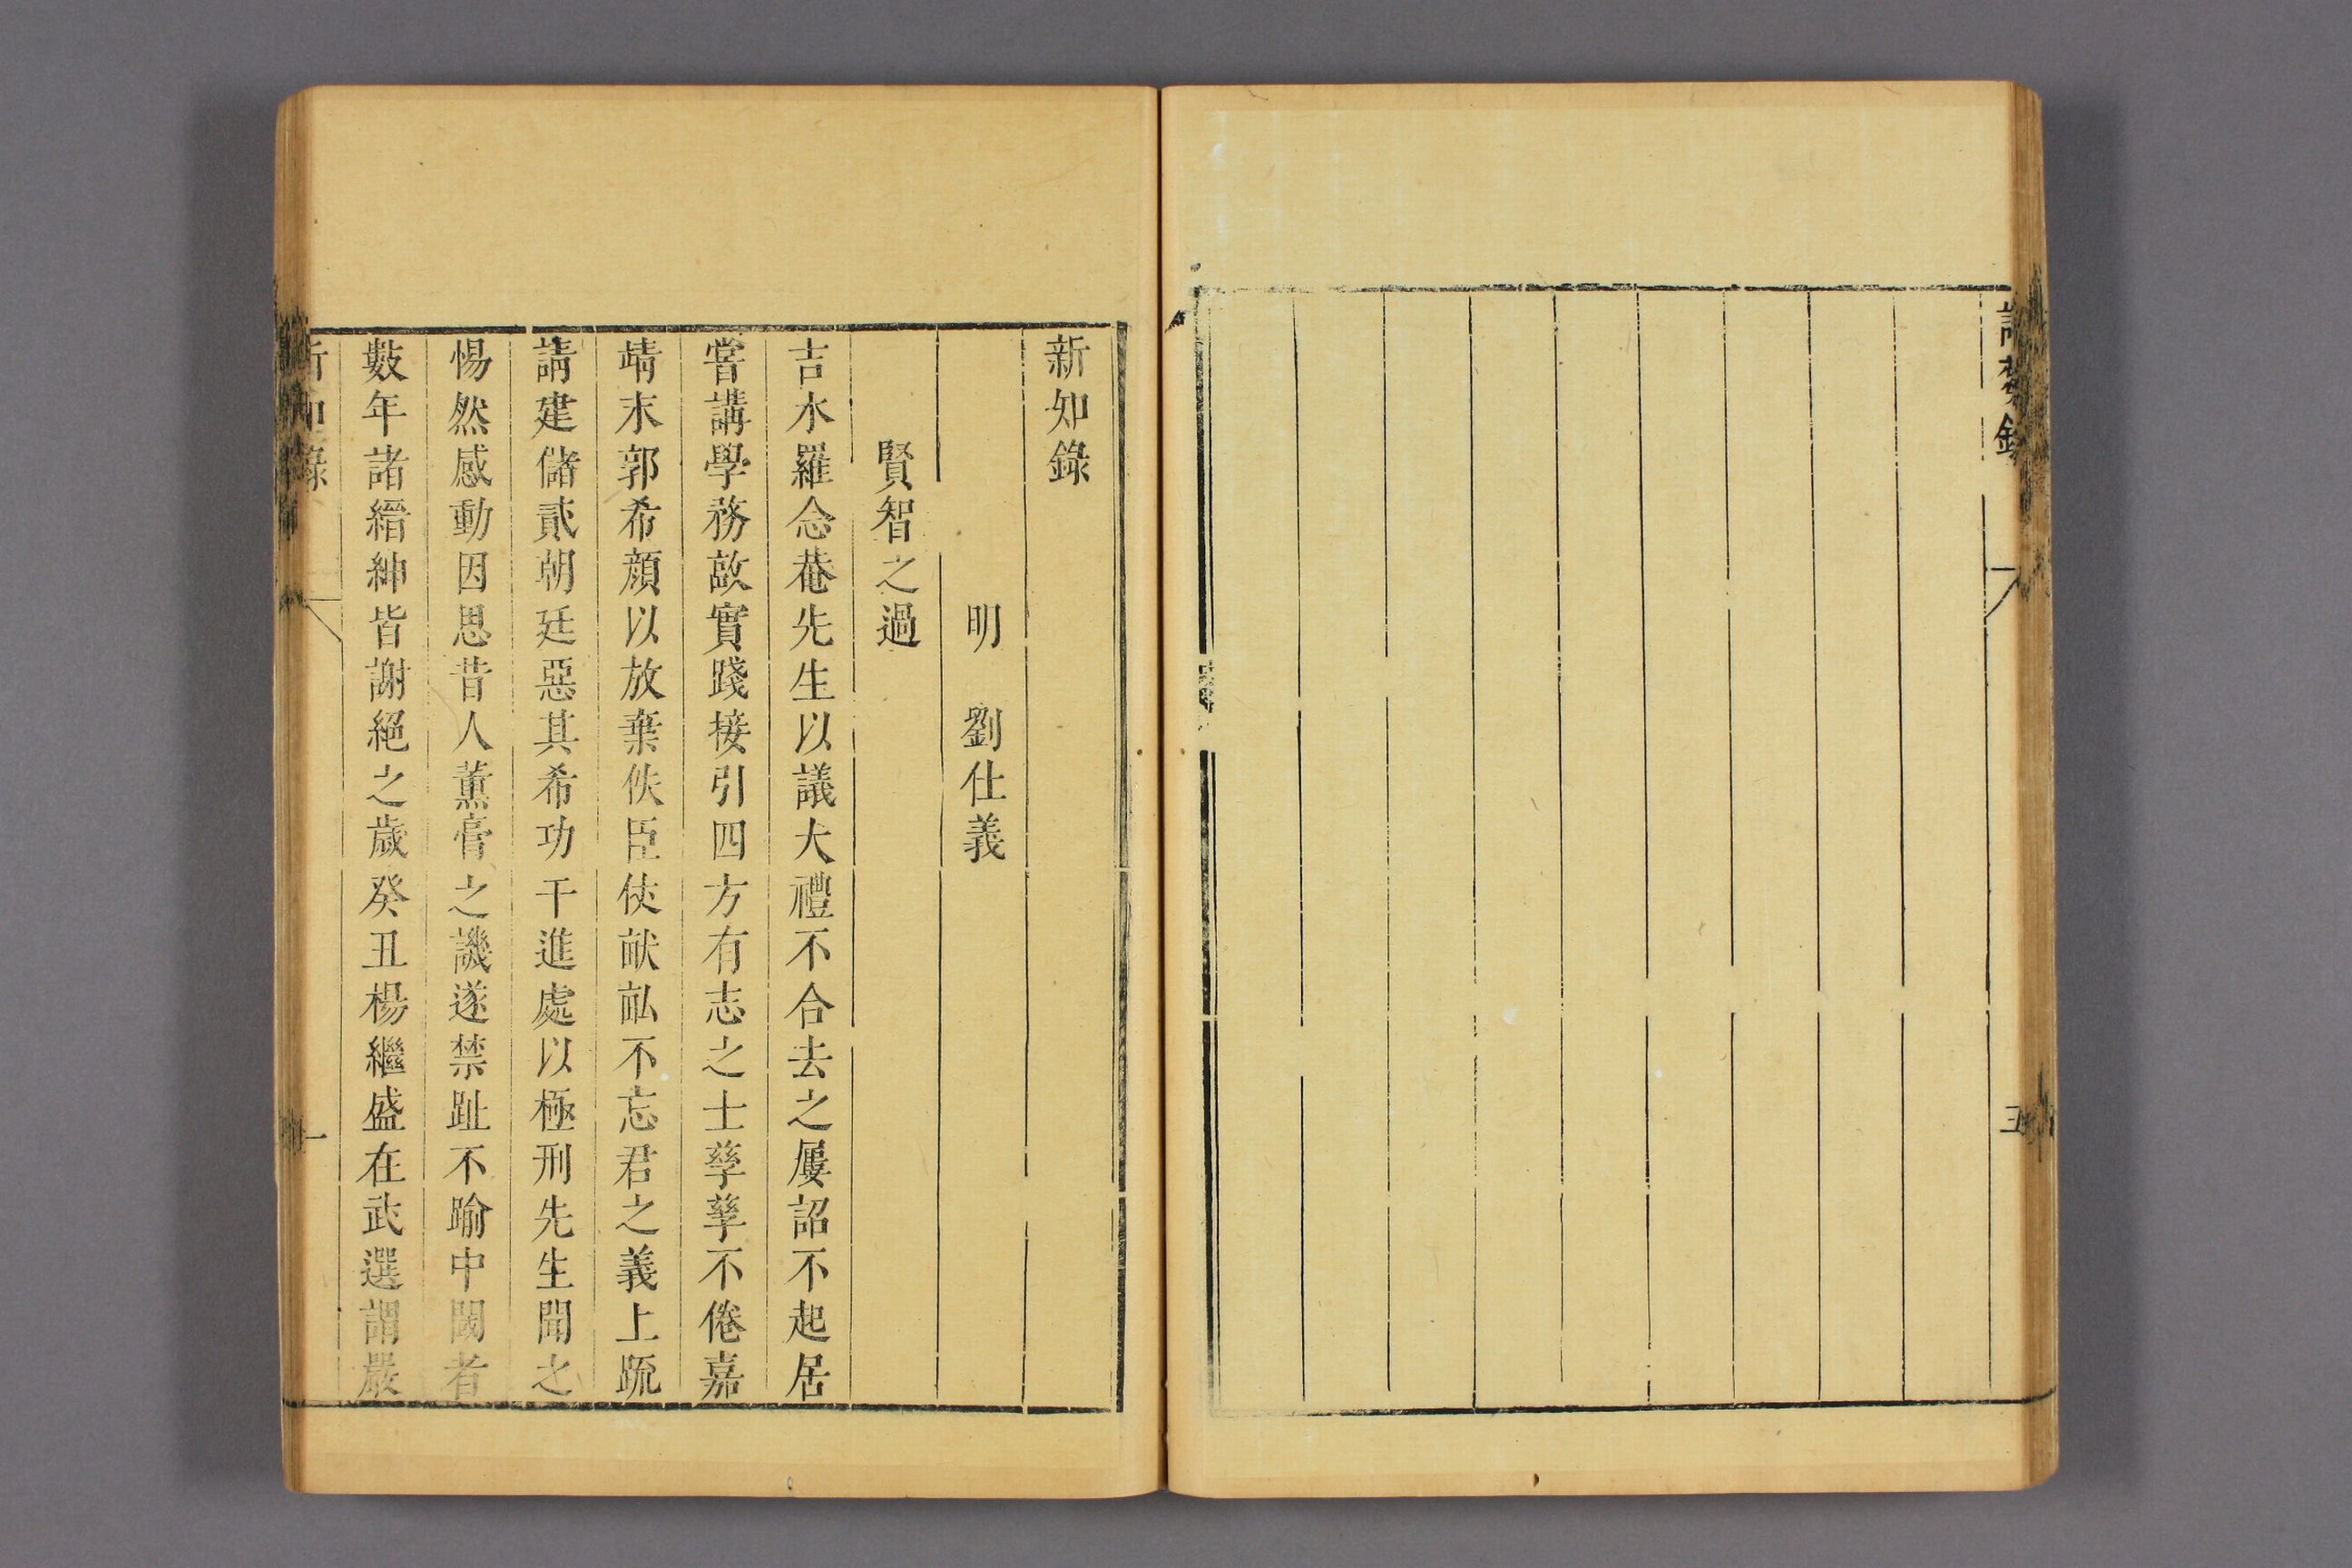 新知錄
明 劉仕義
賢智之過
吉水羅念菴先生以議大禮不合去之屢詔不起居
嘗講學務敦實踐接引四方有志之士孳孳不倦嘉
靖末郭希顏以放棄佚臣使畎畝不忘君之義上疏
請建儲貳朝廷惡其希功干進處以極刑先生聞之
惕然感動因思昔人薰膏之譏遂禁趾不踰中閾者
數年諸縉紳皆謝絕之歲癸丑楊繼盛在武選謂嚴
新知錄
一